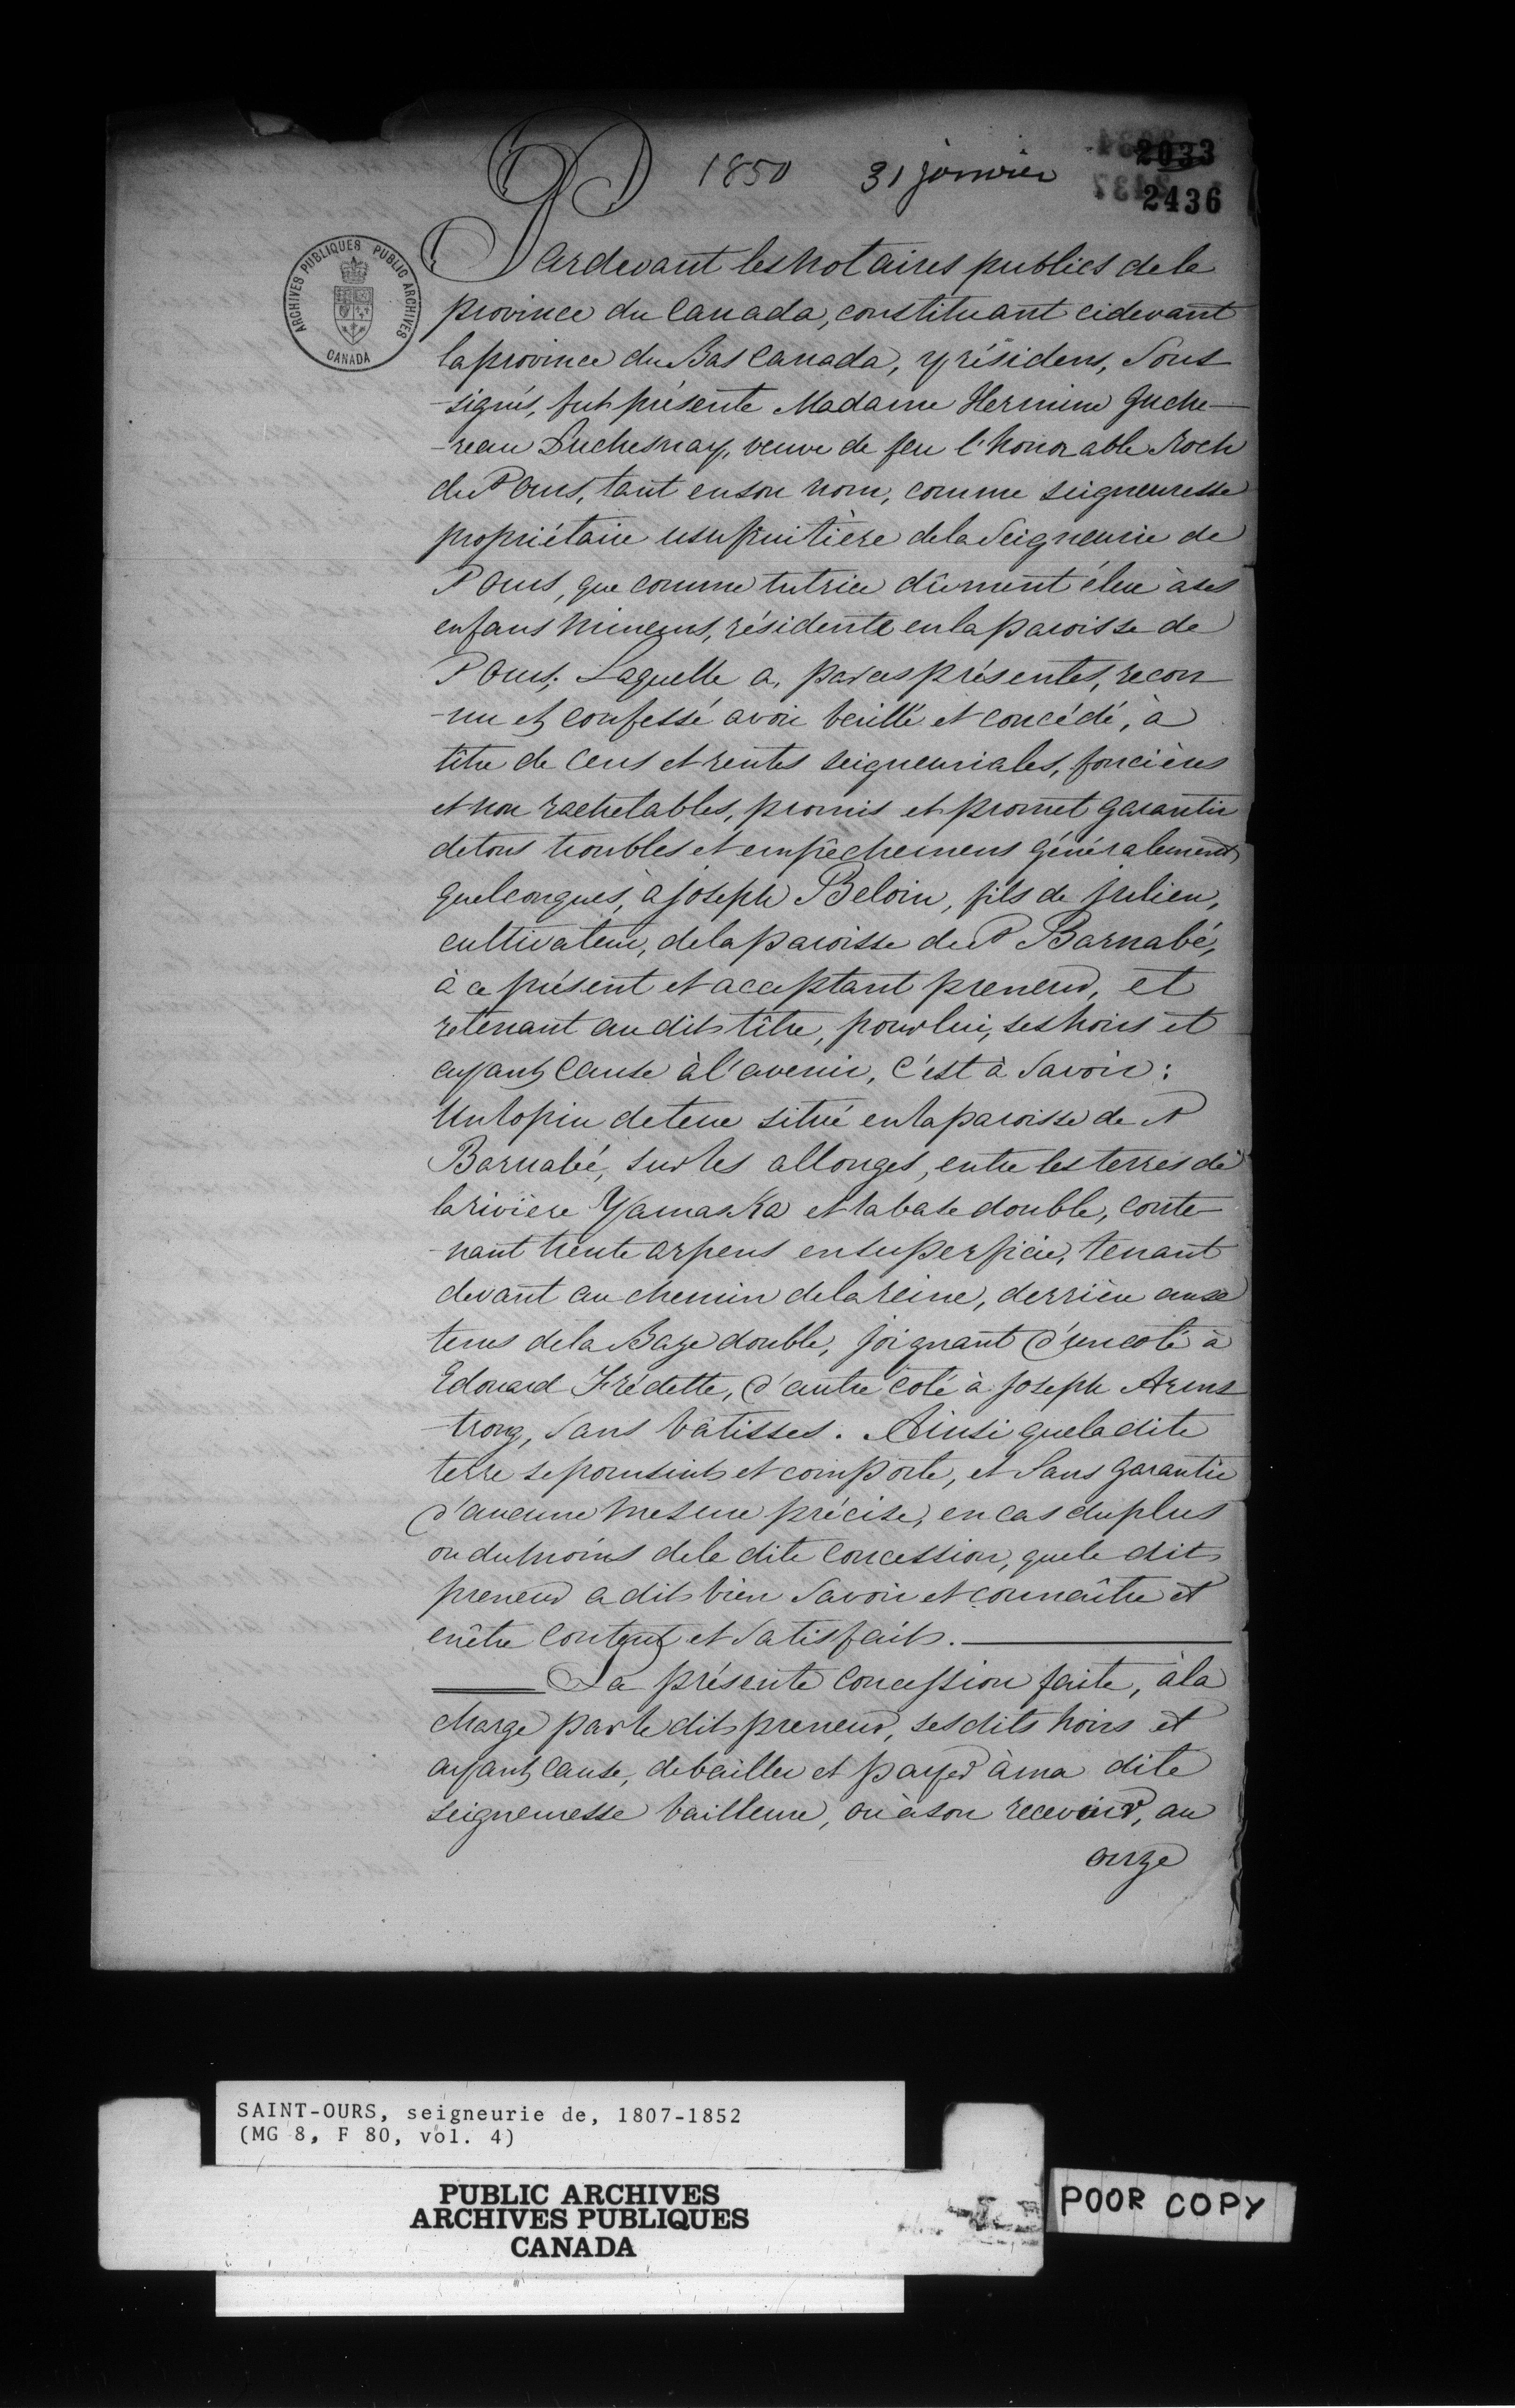 1850 31 janvier
2033
2436
ARCHIVES PUBLIQUES PUBLIC ARCHIVES
CANADA
Pardevant les Notaires publics de la
province du Canada, constituant cidevant
la province du Bas Canada, y résidens, Sous
-signés, fut présente Madame Hermine Juche-
-reau Duchesnay, veuve de feu l'honorable Roch
de St Ours, tant en son nom, comme seigneuresse
propriétaire usufruitière de la Seigneurie de
St Ours, que comme tutrice dûement élue à ses
enfans mineurs, résidente en la paroisse de
St Ours; Laquelle a, par ces présentes, recon
-nu et confessé avoir baillé et concédé, à
titre de cens et rentes seigneuriales, foncières
et non rachetables, promis et promet garantir
de tous troubles et empêchemens généralement
quelconques, à Joseph Beloin, fils de Julien,
cultivateur, de la paroisse de St Barnabé,
à ce présent et acceptant preneur, et
retenant au dit titre, pour lui, ses hoirs et
ayant cause à l'avenir, c'est à Savoir:
Un lopin de terre situé en la paroisse de St
Barnabé, sur les allonges, entre les terres de
la rivière Yamaska et la base double, conte-
-nant trente arpens en superficie, tenant
devant au chemin de la reine, derrière aux
terres de la Baze double, joignant d'un coté à
Edouard Frédette, d'autre coté à Joseph Arms
-trong, sans bâtisses. Ainsi que la dite
terre se poursuit et comporte, et Sans garantie
d'aucune mesure précise, en cas du plus
ou du moins de la dite concession, que le dit
preneur a dit bien Savoir et connaître et
en être content et Satisfait.
La présente concession faite, à la
charge par le dit preneur, ses dits hoirs et
ayant cause, de bailler et payer à ma dite
seigneuresse bailleure, ou à son receveur, au
onze
SAINT-OURS, seigneurie de, 1807-1852
(MG 8, F 80, vol. 4)
PUBLIC ARCHIVES
ARCHIVES PUBLIQUES
CANADA
POOR COPY